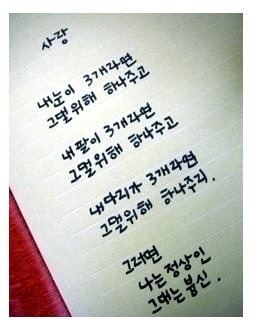 사랑
내눈이 3개라면
그멀위해 하나주고
내팔이 3개라면
그멀위해 하나주고
내다리가 3개라면
그멀위해 하나주리.
그러면
나는정상인
그대는 븅신.